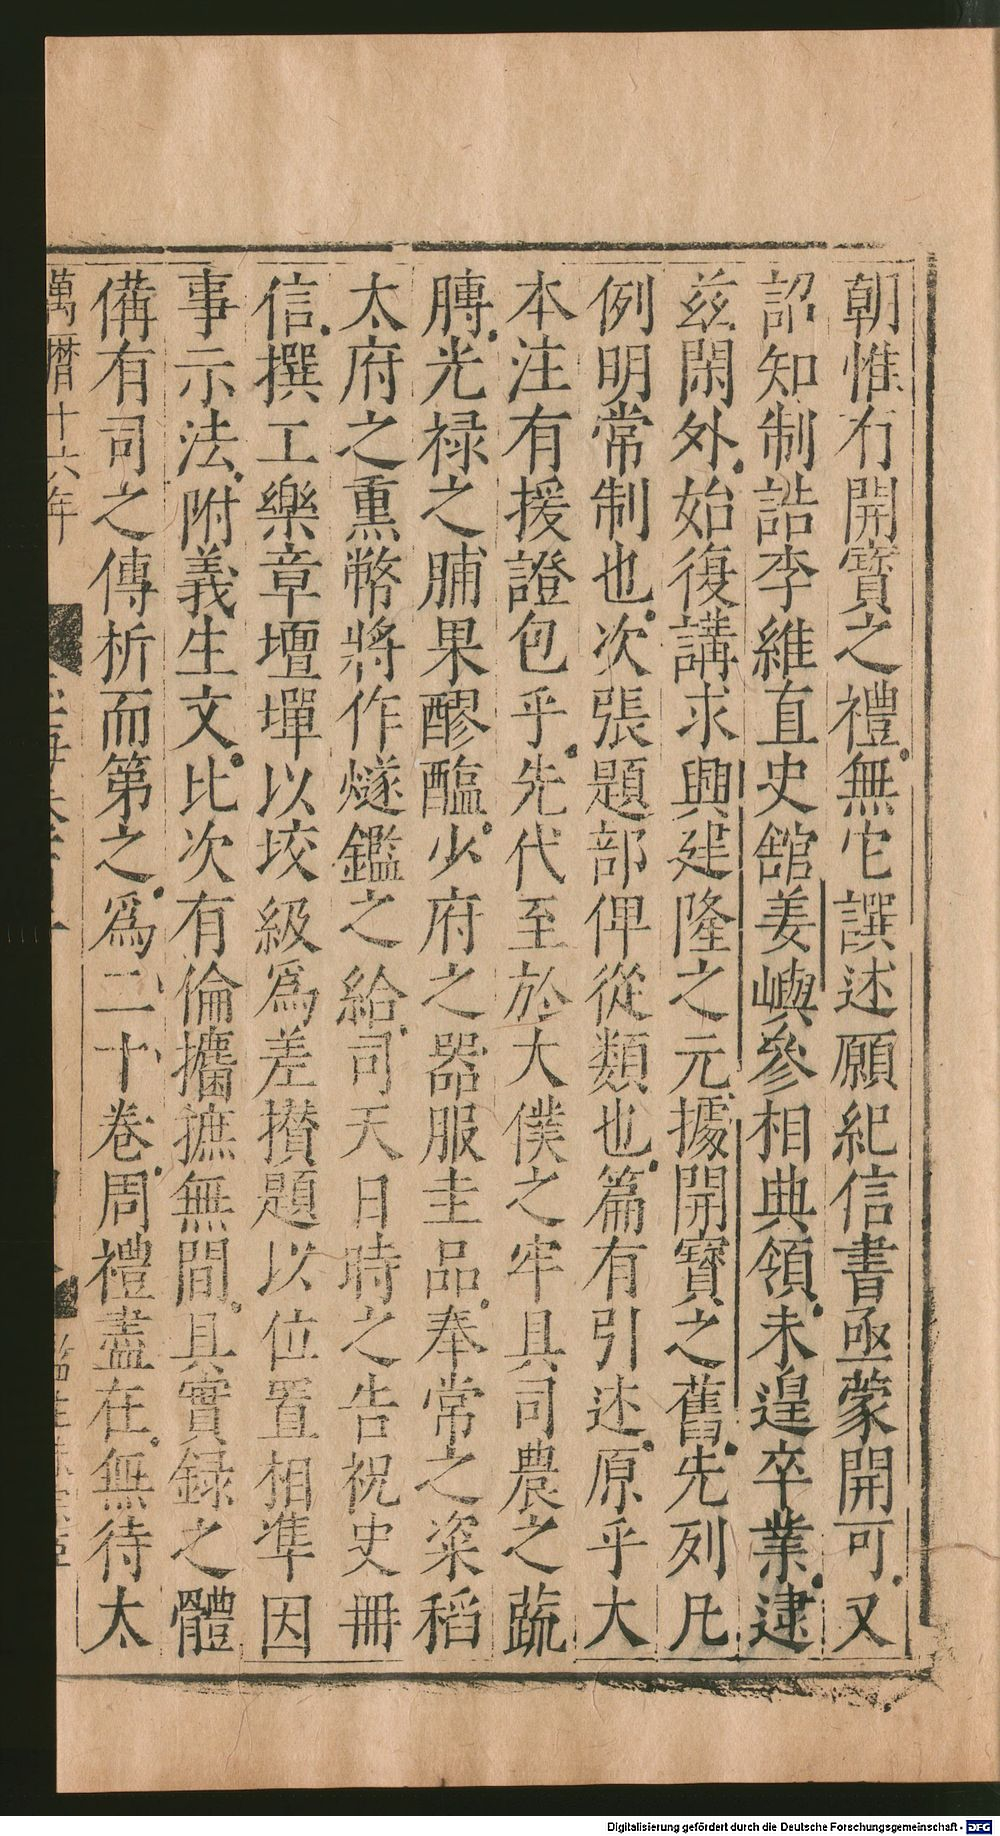 朝惟冇開寶之禮無它譔述願紀信書亟蒙開可又
詔知制誥李維直史館姜嶼參相典領未遑卒業逮
茲閑外始復講求興建隆之元據開寶之舊先列凡
例明常制也次張題部俾從類也篇有引述原乎大
本注有援證包乎先代至於大僕之牢具司農之蔬
膞光祿之脯果醪醢少府之器服圭品奉常之粢稻
太府之熏幣將作燧鑑之給司天日時之告祝史冊
信撰工樂章壇墠以垓級爲差攅題以位置相準因
事示法附義生文比次有倫攟摭無間具實録之體
備有司之傳析而第之爲二十卷周禮盡在無待太
萬曆十六年
Digitalisierung gefördert durch die Deutsche Forschungsgemeinschaft - DFG